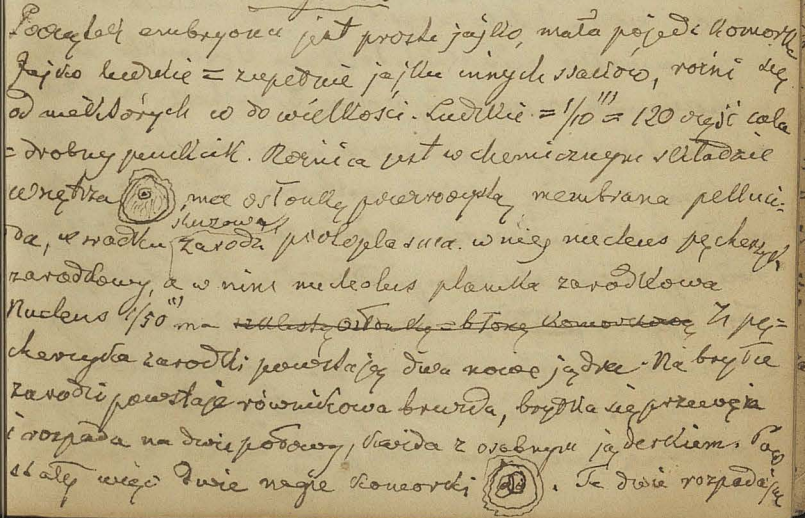 Początek embryonu jest proste jajko, mała pojedź. komorka
Jajko ludzkie = zupełnie jajku innych ssaków, rożni się
od niektórych w do wielkości. Ludzkie = 1/10''' = 120 część cala
= drobny punkcik. Rożnica jest w chemicznym składzie
wnętrza, ma osłonkę przezroczystą membrana pelluci-
da, w środku śluzowa zarodź protoplasma. w niej nucleus pęcherzyk
zarodkowy, a w nim nucleolus plamka zarodkowa
Nucleus 1/50''' ma Z pę=
cherzyka zarodki powstają dwa nowe jądra. Na bryłce
zarodzi powstaje równikowa bruzda, bryłka się przewęża
i rozpada na dwie połowy, każda z osobnym jąderkiem. Pow
stały więc dwie nagie komorki. Te dwie rozpadają